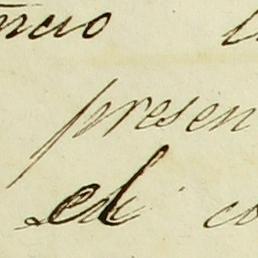 ncio
presen
el co